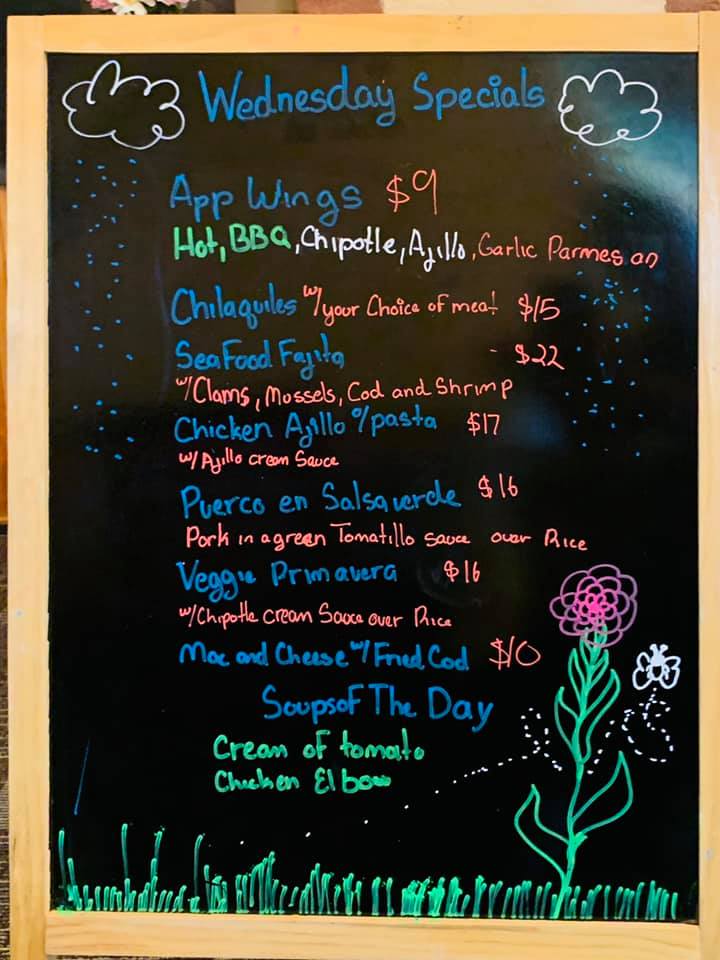 Wednesday Specials
App Wings $9
Hot, BBQ, Chipotle, Ajillo, Garlic Parmesan
Chilaquiles w/ your Choice of meat $15
SeaFood Fajita - $22
w/Clams, Mussels, Cod and Shrimp
Chicken Ajillo o/pasta $17
w/ Ajillo cream Sauce
Puerco en Salsa verde $16
Pork in a green Tomatillo sauce over Rice
Veggie Primavera $16
w/Chipotle cream Sauce over Rice
Mac and Cheese w/ Fried Cod $10
Soups of The Day
Cream of tomato
Chicken Elbow